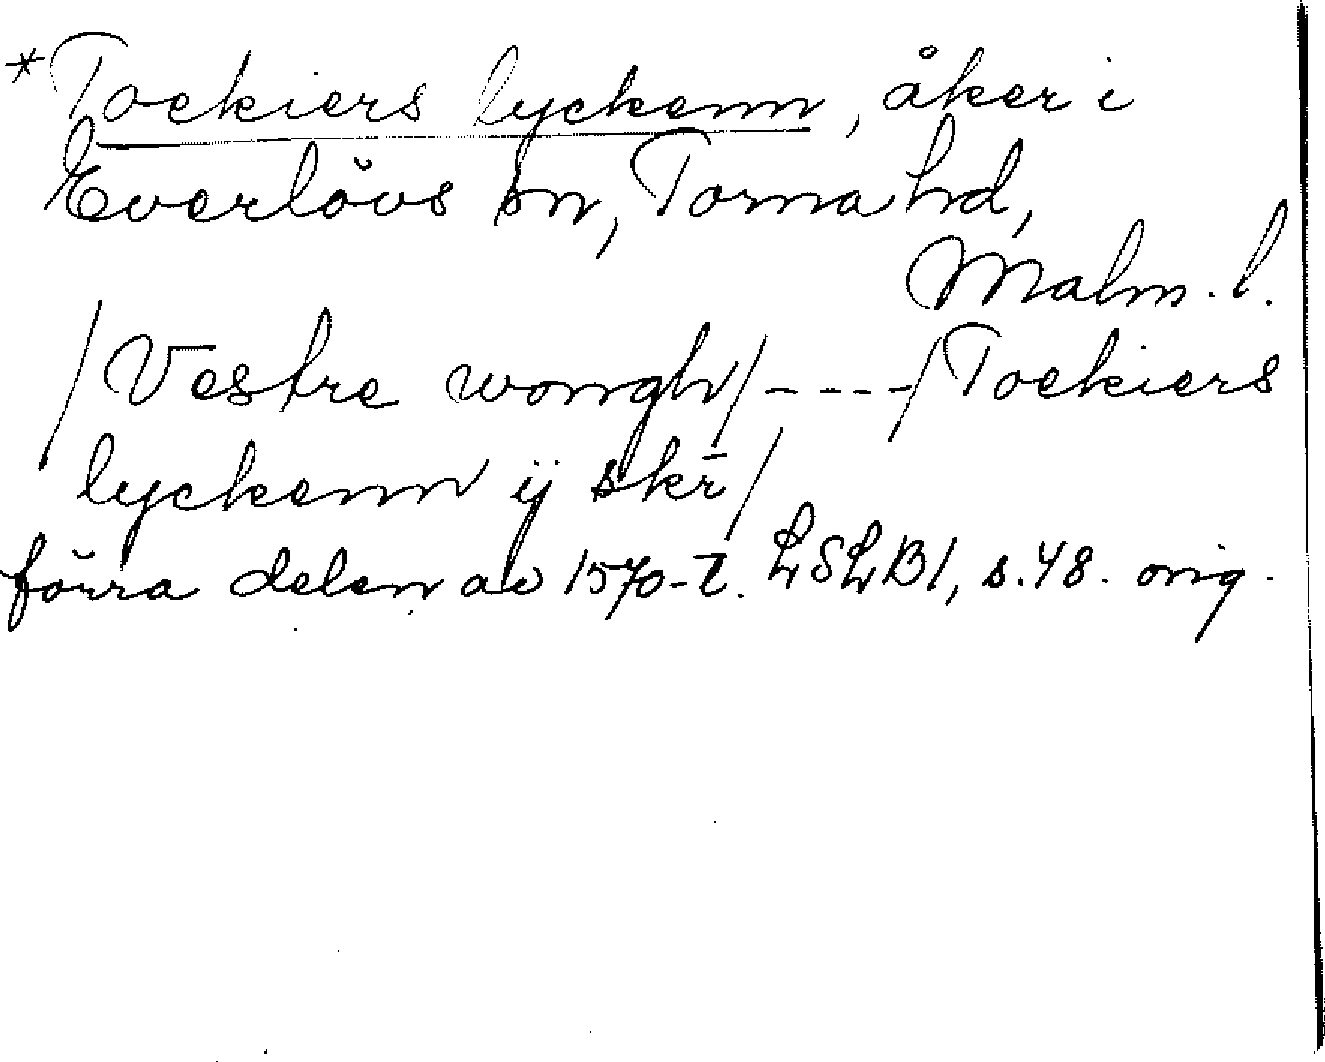 *Toekiers lyckenn, åker i
Everlövs sn, Torna hd,
Malm. l.
/Vestre wongh/----/Toekiers
lyckenn ij skr̄/
förra delen av 1570-t. LSLB1, s.48. orig.